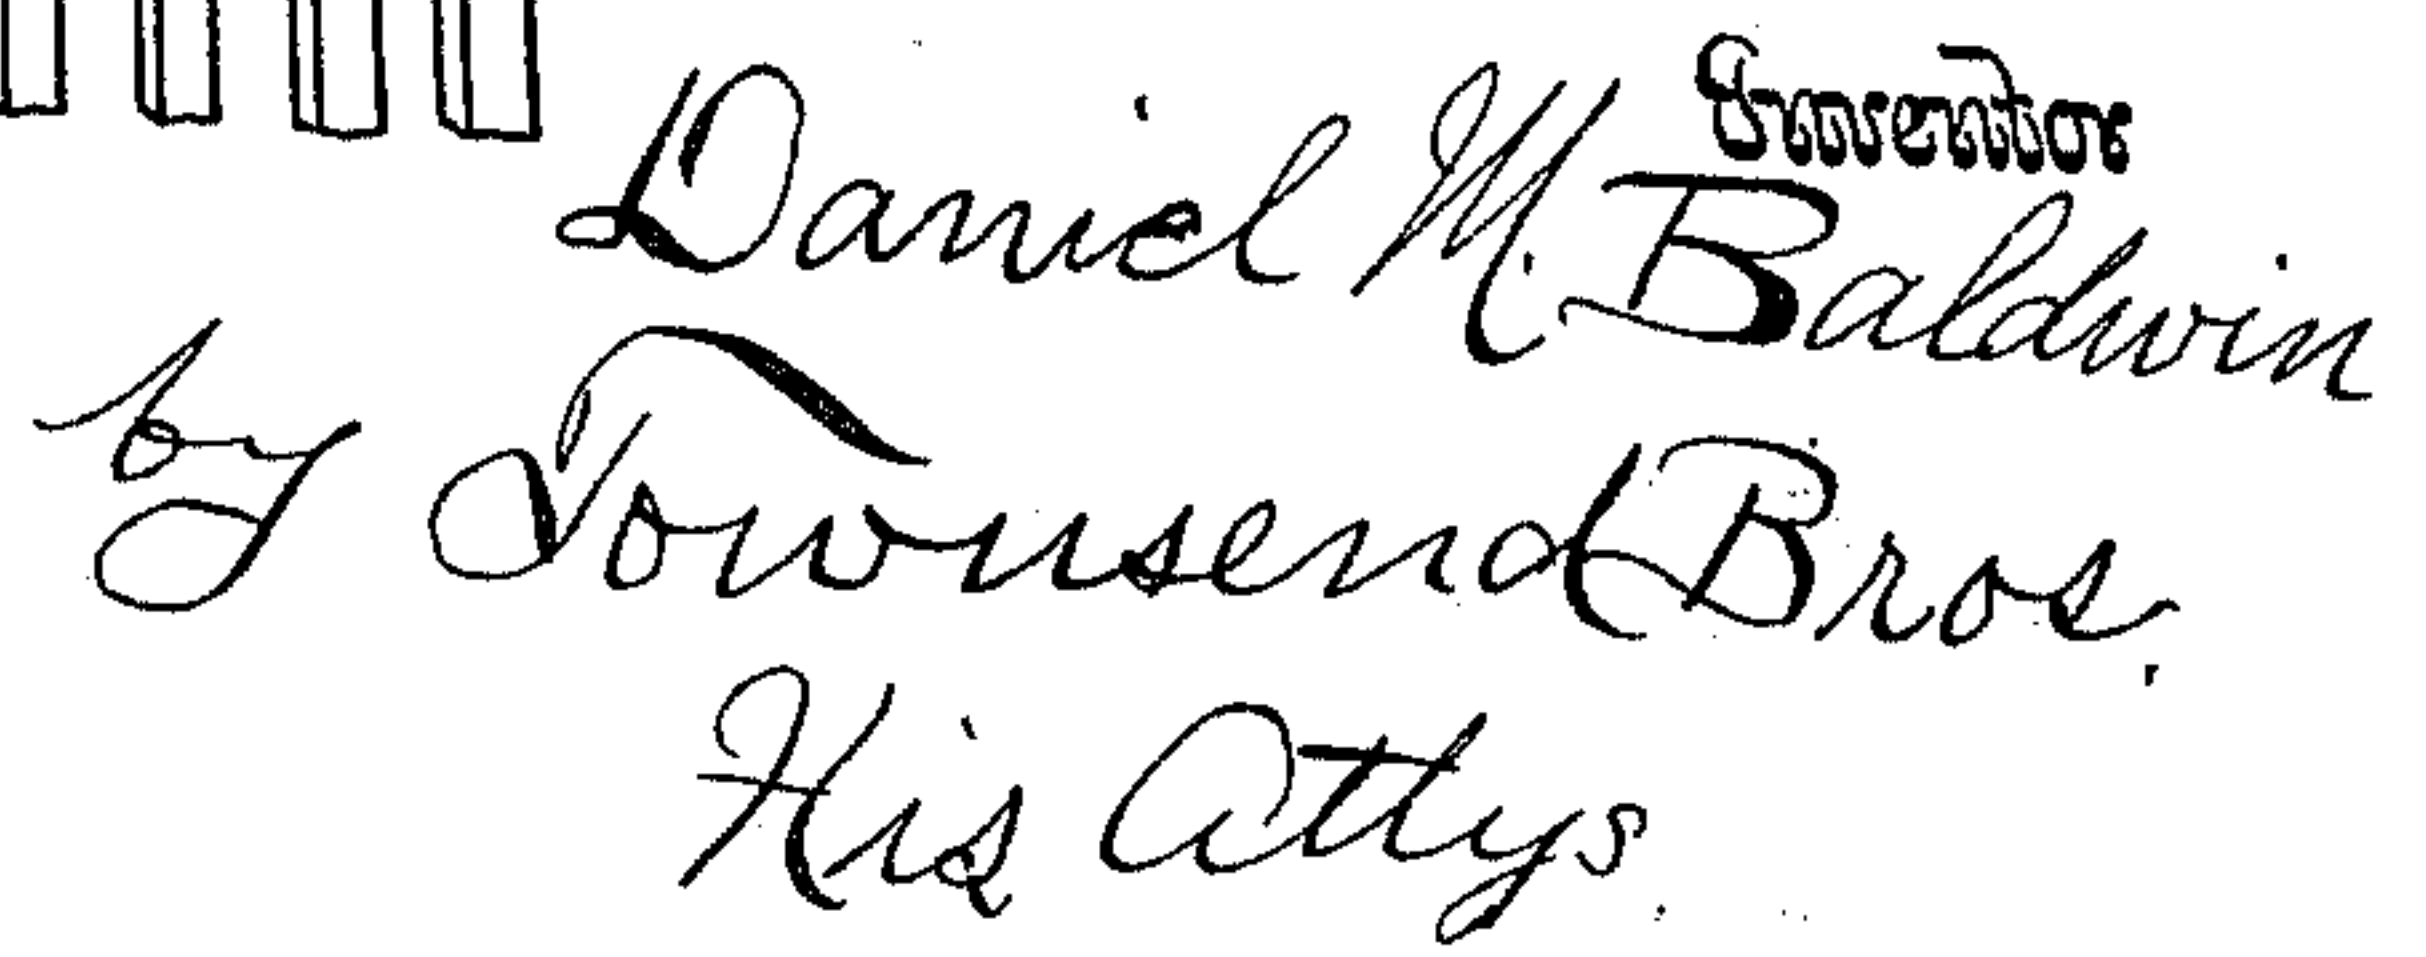 Inventor
Daniel M. Baldwin
by Townsend Bros.
His Attys.